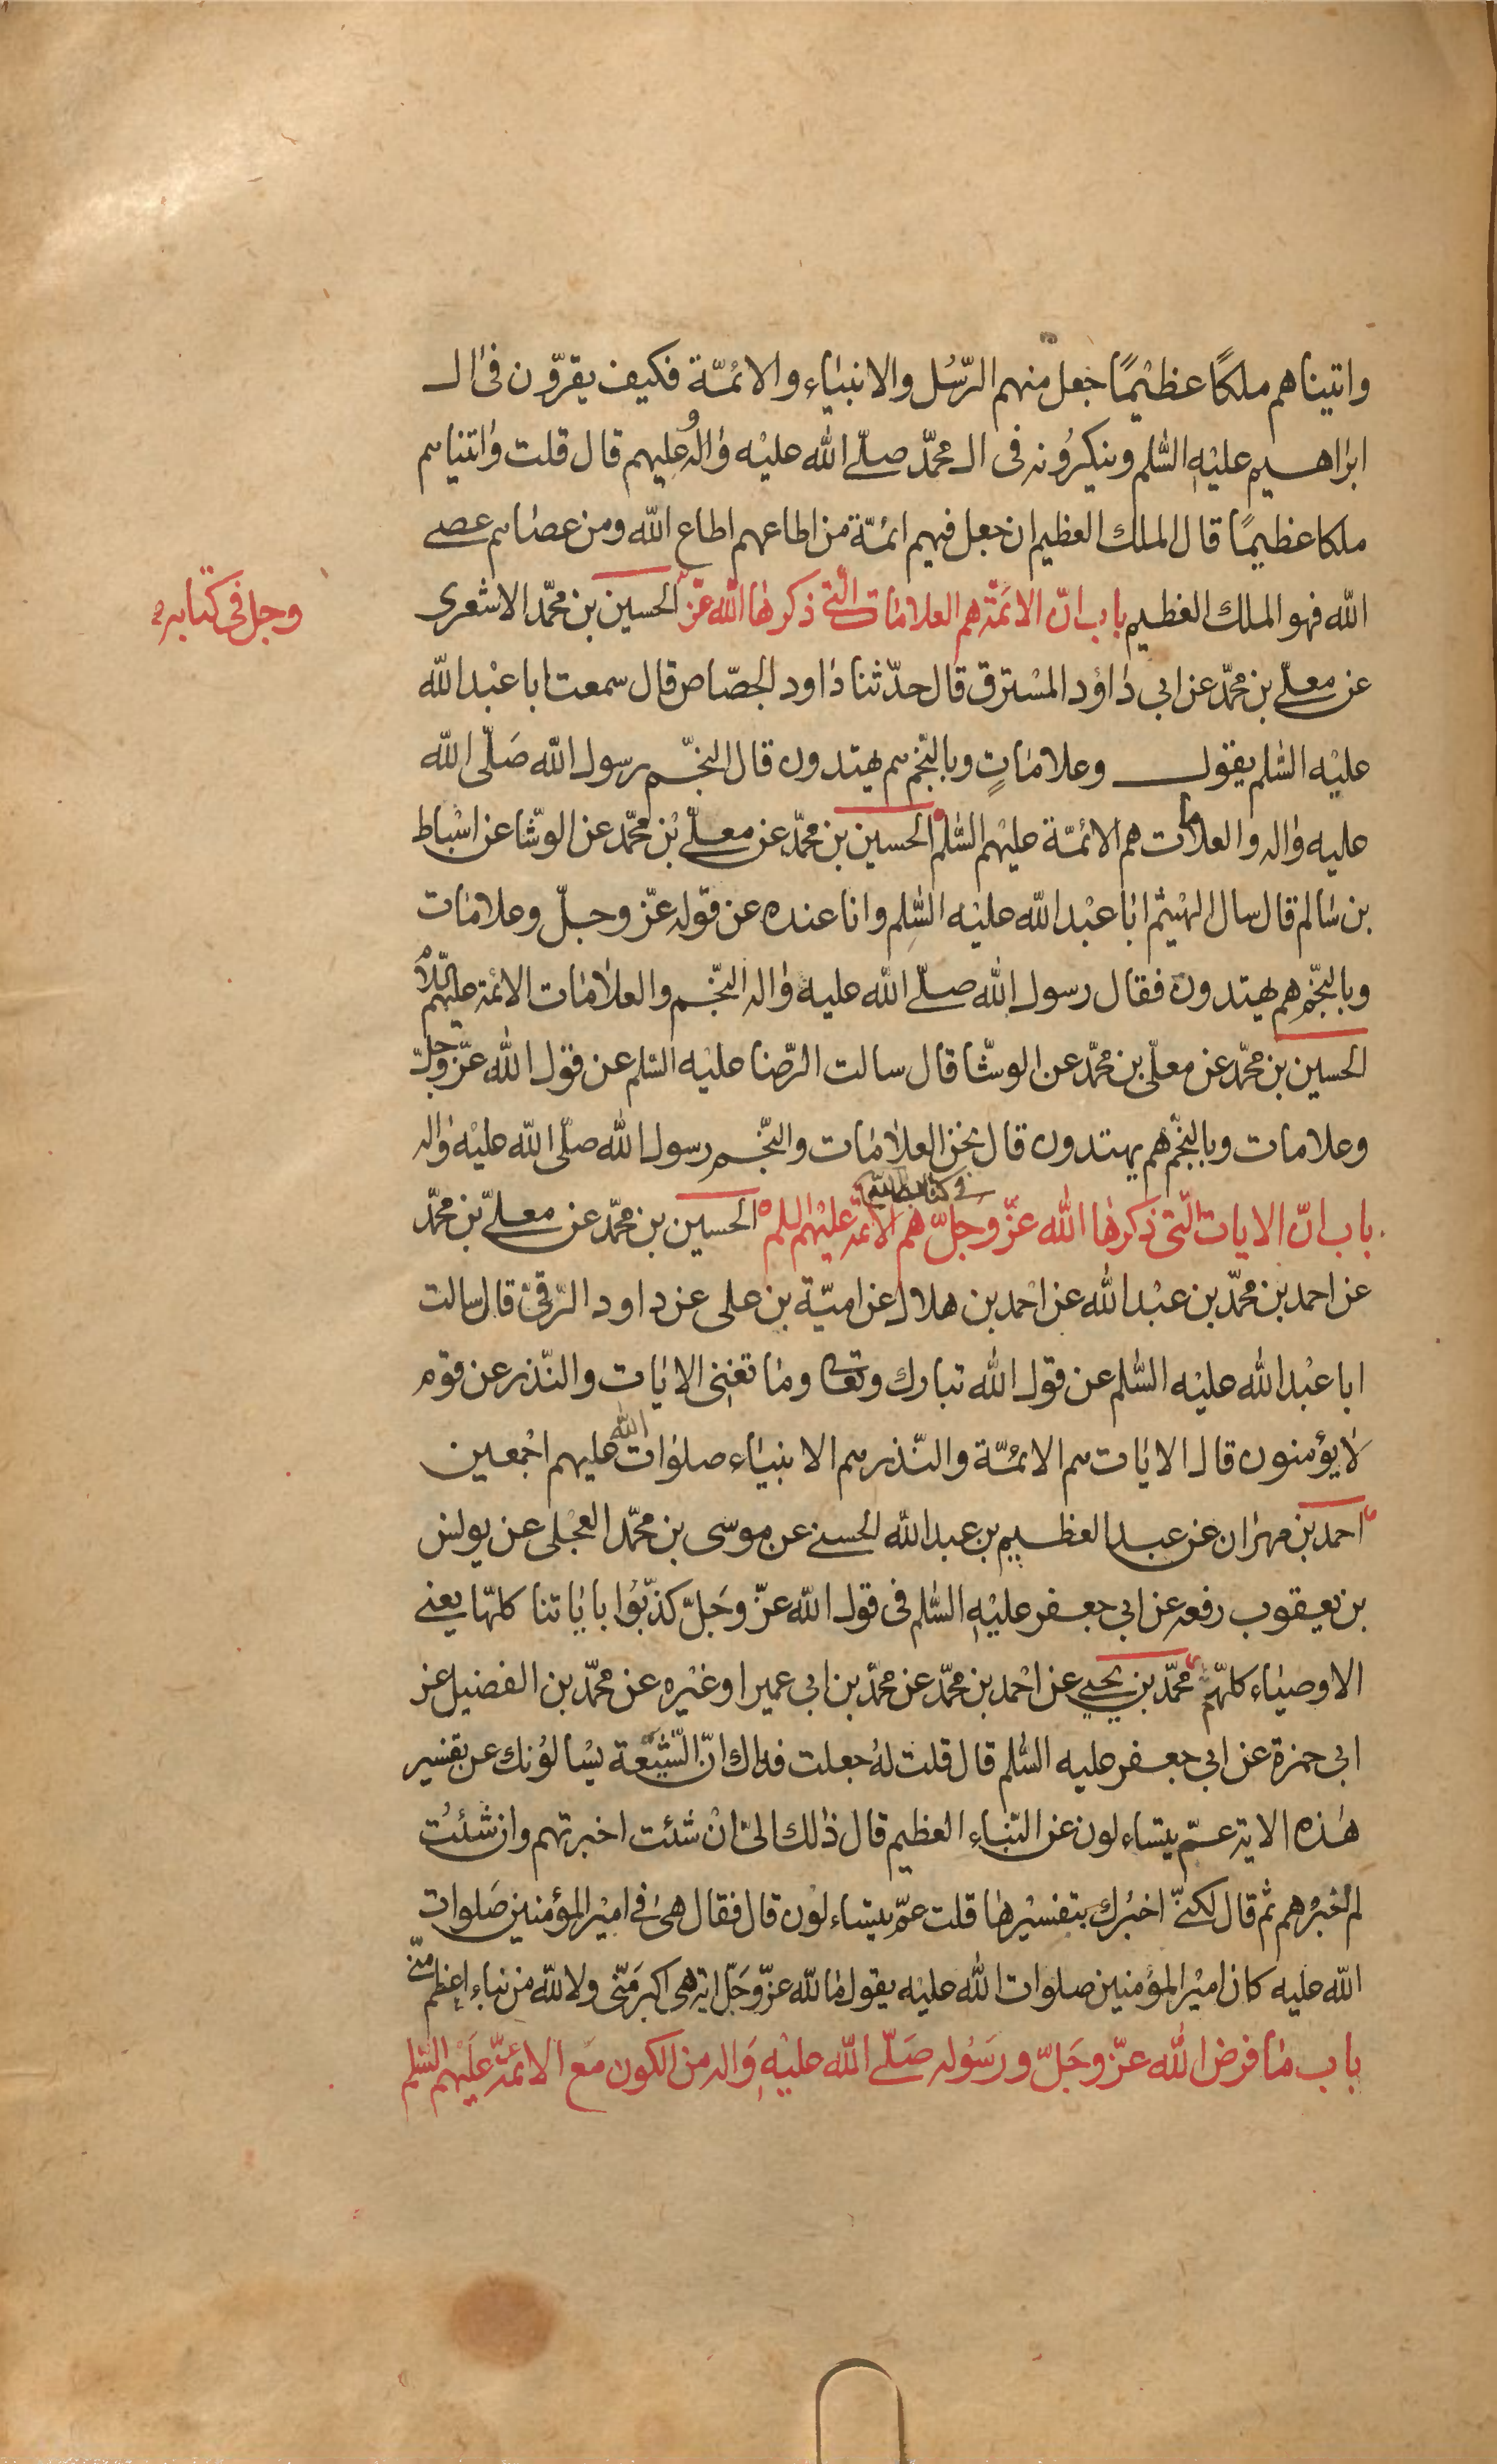 واتيناهم ملكًا عظيْمًا جعل منهم الرّسُل والانبيَاء والائمّة فكيف يقرّون فى ال
ابراهيم عليْهِ السَّلم وينكِرُونه فى ال محمّد صلّى الله عليْه وَالهُ وعليهم قال قلت وَاتيناهم
ملكا عظيمًا قال الملك العظيم ان جعل فيهم ائمّة من اطاعهم اطاع الله ومن عصاهم عصى
الله فهو الملك العظيم باب انّ الائمّة هم العلامات التّى ذكرهَا الله عزّ الحسين بن محمّد الاشعرى
وجل فى كتابه
عن معلّى بن محمّد عن ابى دَاؤد المسْترق قال حدّثنا دَاود الجصّاص قال سمعت ابا عبْد الله
عليْه السَّلم يقول وعلامَاتٍ وبالنّجْم هم يهتدون قال النجّم رسول الله صَلّى الله
عليه وَاله والعلامات هم الائمّة عليْهم السَّلم الحسين بن محمّد عن معلّى بْن محمّد عن الوشّا عن اسْباط
بن سَالم قال سال الهيْثم ابَا عبْد الله عليْه السَّلم وانا عنده عن قوله عزّ وجلّ وعلامَات
وبالنّجم هم يهتدون فقال رسول الله صلّى الله عليه وَاله النّجم والعلامَات الائمة عليهم السّلام
الحسين بن محمّد عن معلّى بن محمّد عن الوشّا قال سالت الرّضا عليْه السّلم عن قول الله عزّ وجلّ
وعلامات وبالنّجم هم يهتدون قال نحن العلامَات والنّجم رسول الله صلّى الله عليْه وَاله
باب انّ الايات الّتى ذكرهَا الله عزّ وجلّ هم الائمة عليْهم السلم الحسين بن محمّد عن معلّى بن محمّد
فى كتابه
عن احمد بن محمّد بن عبْد الله عن احْمد بن هلال عن اميّة بن على عن داود الرّقىّ قال سالت
ابا عبْد الله عليْه السَّلم عن قول الله تبارك وتعالى ومَا تغنِى الايَات والنّذر عن قوم
لا يؤمنون قال الايَات هم الائمّة والنّذر هم الانبيَاء صلوَات الله عليهم اجْمعين
احمد بن مهرَان عن عبد العظيم بن عبد الله الحسنى عن موسى بن محمّد العجْلى عن يونس
بن يعقوب رفعه عن ابى جعفر عليْهِ السَّلم فى قول الله عزّ وجَلّ كذّبُوا بايَاتنا كلّها يعنى
الاوصيَاء كلّهم محمّد بن يحيى عن احْمد بن محمّد عن محمّد بن ابى عمير او غيْره عن محمّد بن الفضيل عن
ابى حمزة عن ابى جعفر عليه السَّلم قال قلت لهُ جعلت فداك انّ الشّيْعة يسْالوُنك عن تفسير
هٰذه الاية عمّ يتساءلون عن النّباء العظيم قال ذٰلك الىّ انْ شئت اخبرتهم وان شئتُ
لم اخبرْهم ثم قال لكنّى اخبُرك بتفسيْرهَا قلت عمّ يتساءلوْن قال فقال هىَ فى اميْر المؤمنين صَلوات
الله عليه كان اميْر المؤمنين صلوات الله عليْه يقول مَا لله عزّ وجَلّ اية هى اكبر مَنّى ولا لله من نباء اعظم منّى
باب مَا فرض الله عزّ وجَلّ ورَسُوله صَلّى الله عليْهِ وَاله من الكون مَع الائمّة عَليْهم السّلم